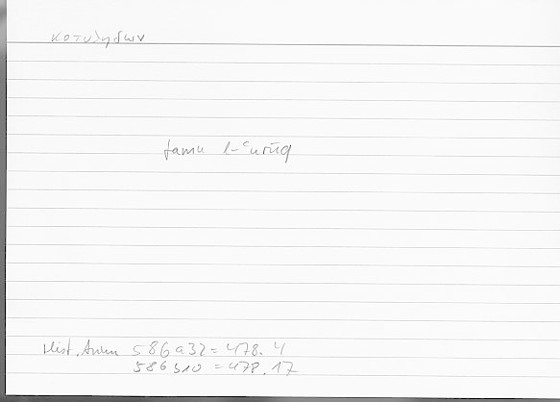 κοτυληδων
famu l-ʿurūq
Hist. Anim 586a32 = 478.4
586b10 = 478.17